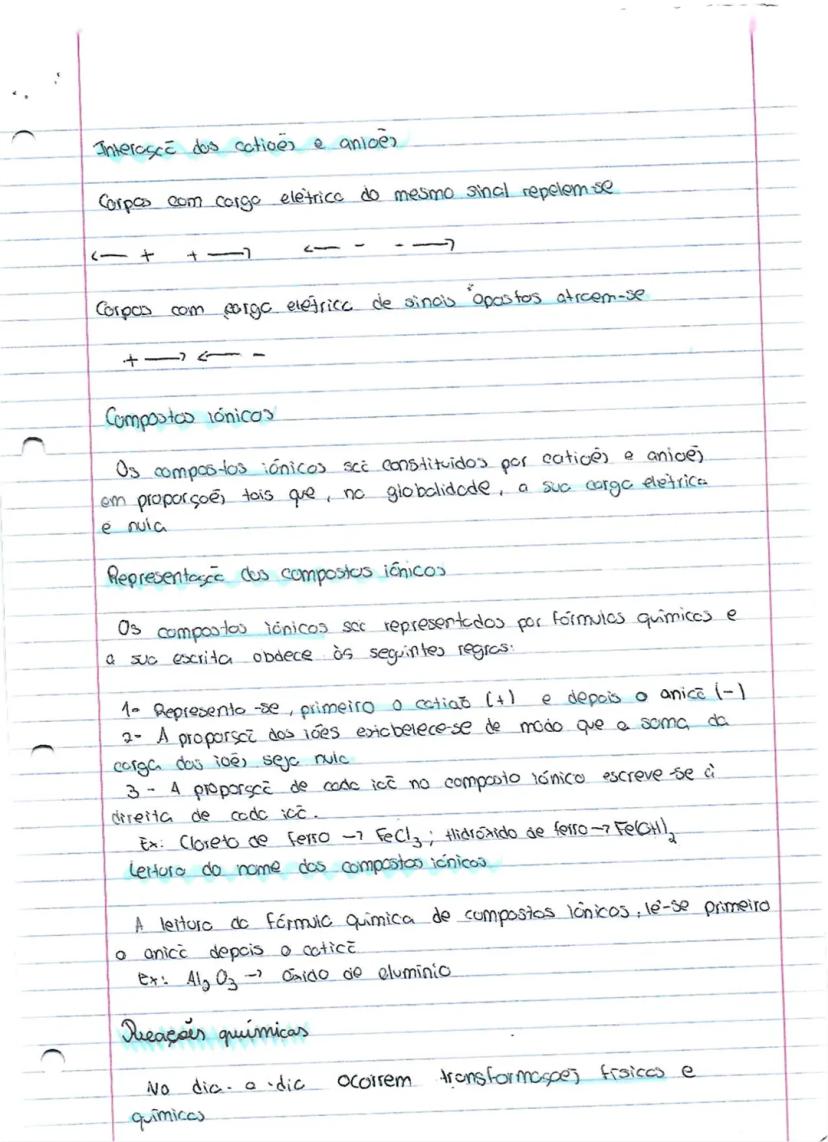 Interação dos catiões e aniões
Corpos com carga elétrica do mesmo sinal repelem-se
<— + + —> <— - - —>
Corpos com carga elétrica de sinais opostos atraem-se
+ —> <— -
Compostos iónicos
Os compostos iónicos são constituídos por catiões e aniões
em proporções tais que, na globalidade, a sua carga elétrica
é nula
Representação dos compostos iónicos
Os compostos iónicos são representados por fórmulas químicas e
a sua escrita obdece às seguintes regras:
1- Representa-se, primeiro o catião (+) e depois o anião (-)
2- A proporção dos iões estabelece-se de modo que a soma da
carga dos iões seja nula
3 - A proporção de cada ião no composto iónico escreve-se à
direita de cada ião.
Ex: Cloreto de ferro -> FeCl₃; Hidróxido de ferro -> Fe(OH)₂
Leitura do nome dos compostos iónicos
A leitura da fórmula química de compostos iónicos, lê-se primeiro
o anião depois o catião
Ex: Al₂O₃ -> Óxido de alumínio
Reações químicas
No dia-a-dia ocorrem transformações físicas e
químicas